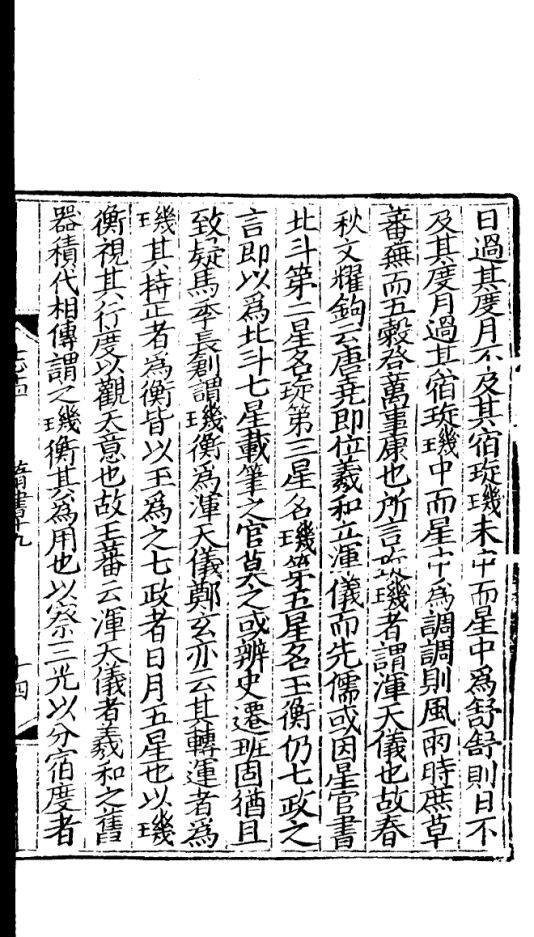 日過其度月不及其宿璇璣未中而星中爲舒舒則日不
及其度月過其宿璇璣中而星中爲調調則風雨時庶草
蕃蕪而五穀登萬事康也所言璇璣者謂渾天儀也故春
秋文耀鉤云唐堯即位羲和立渾儀而先儒或因星官書
北斗第二星名璇第三星名璣第五星名玉衡仍七政之
言即以爲北斗七星載筆之官莫之或辨史遷班固猶且
致疑馬季長創謂璣衡爲渾天儀鄭玄亦云其轉運者爲
璣其持正者爲衡皆以玉爲之七政者日月五星也以璣
衡視其行度以觀天意也故王蕃云渾天儀者羲和之舊
器積代相傳謂之璣衡其爲用也以察三光以分宿度者
志十四 隋書十九 十四